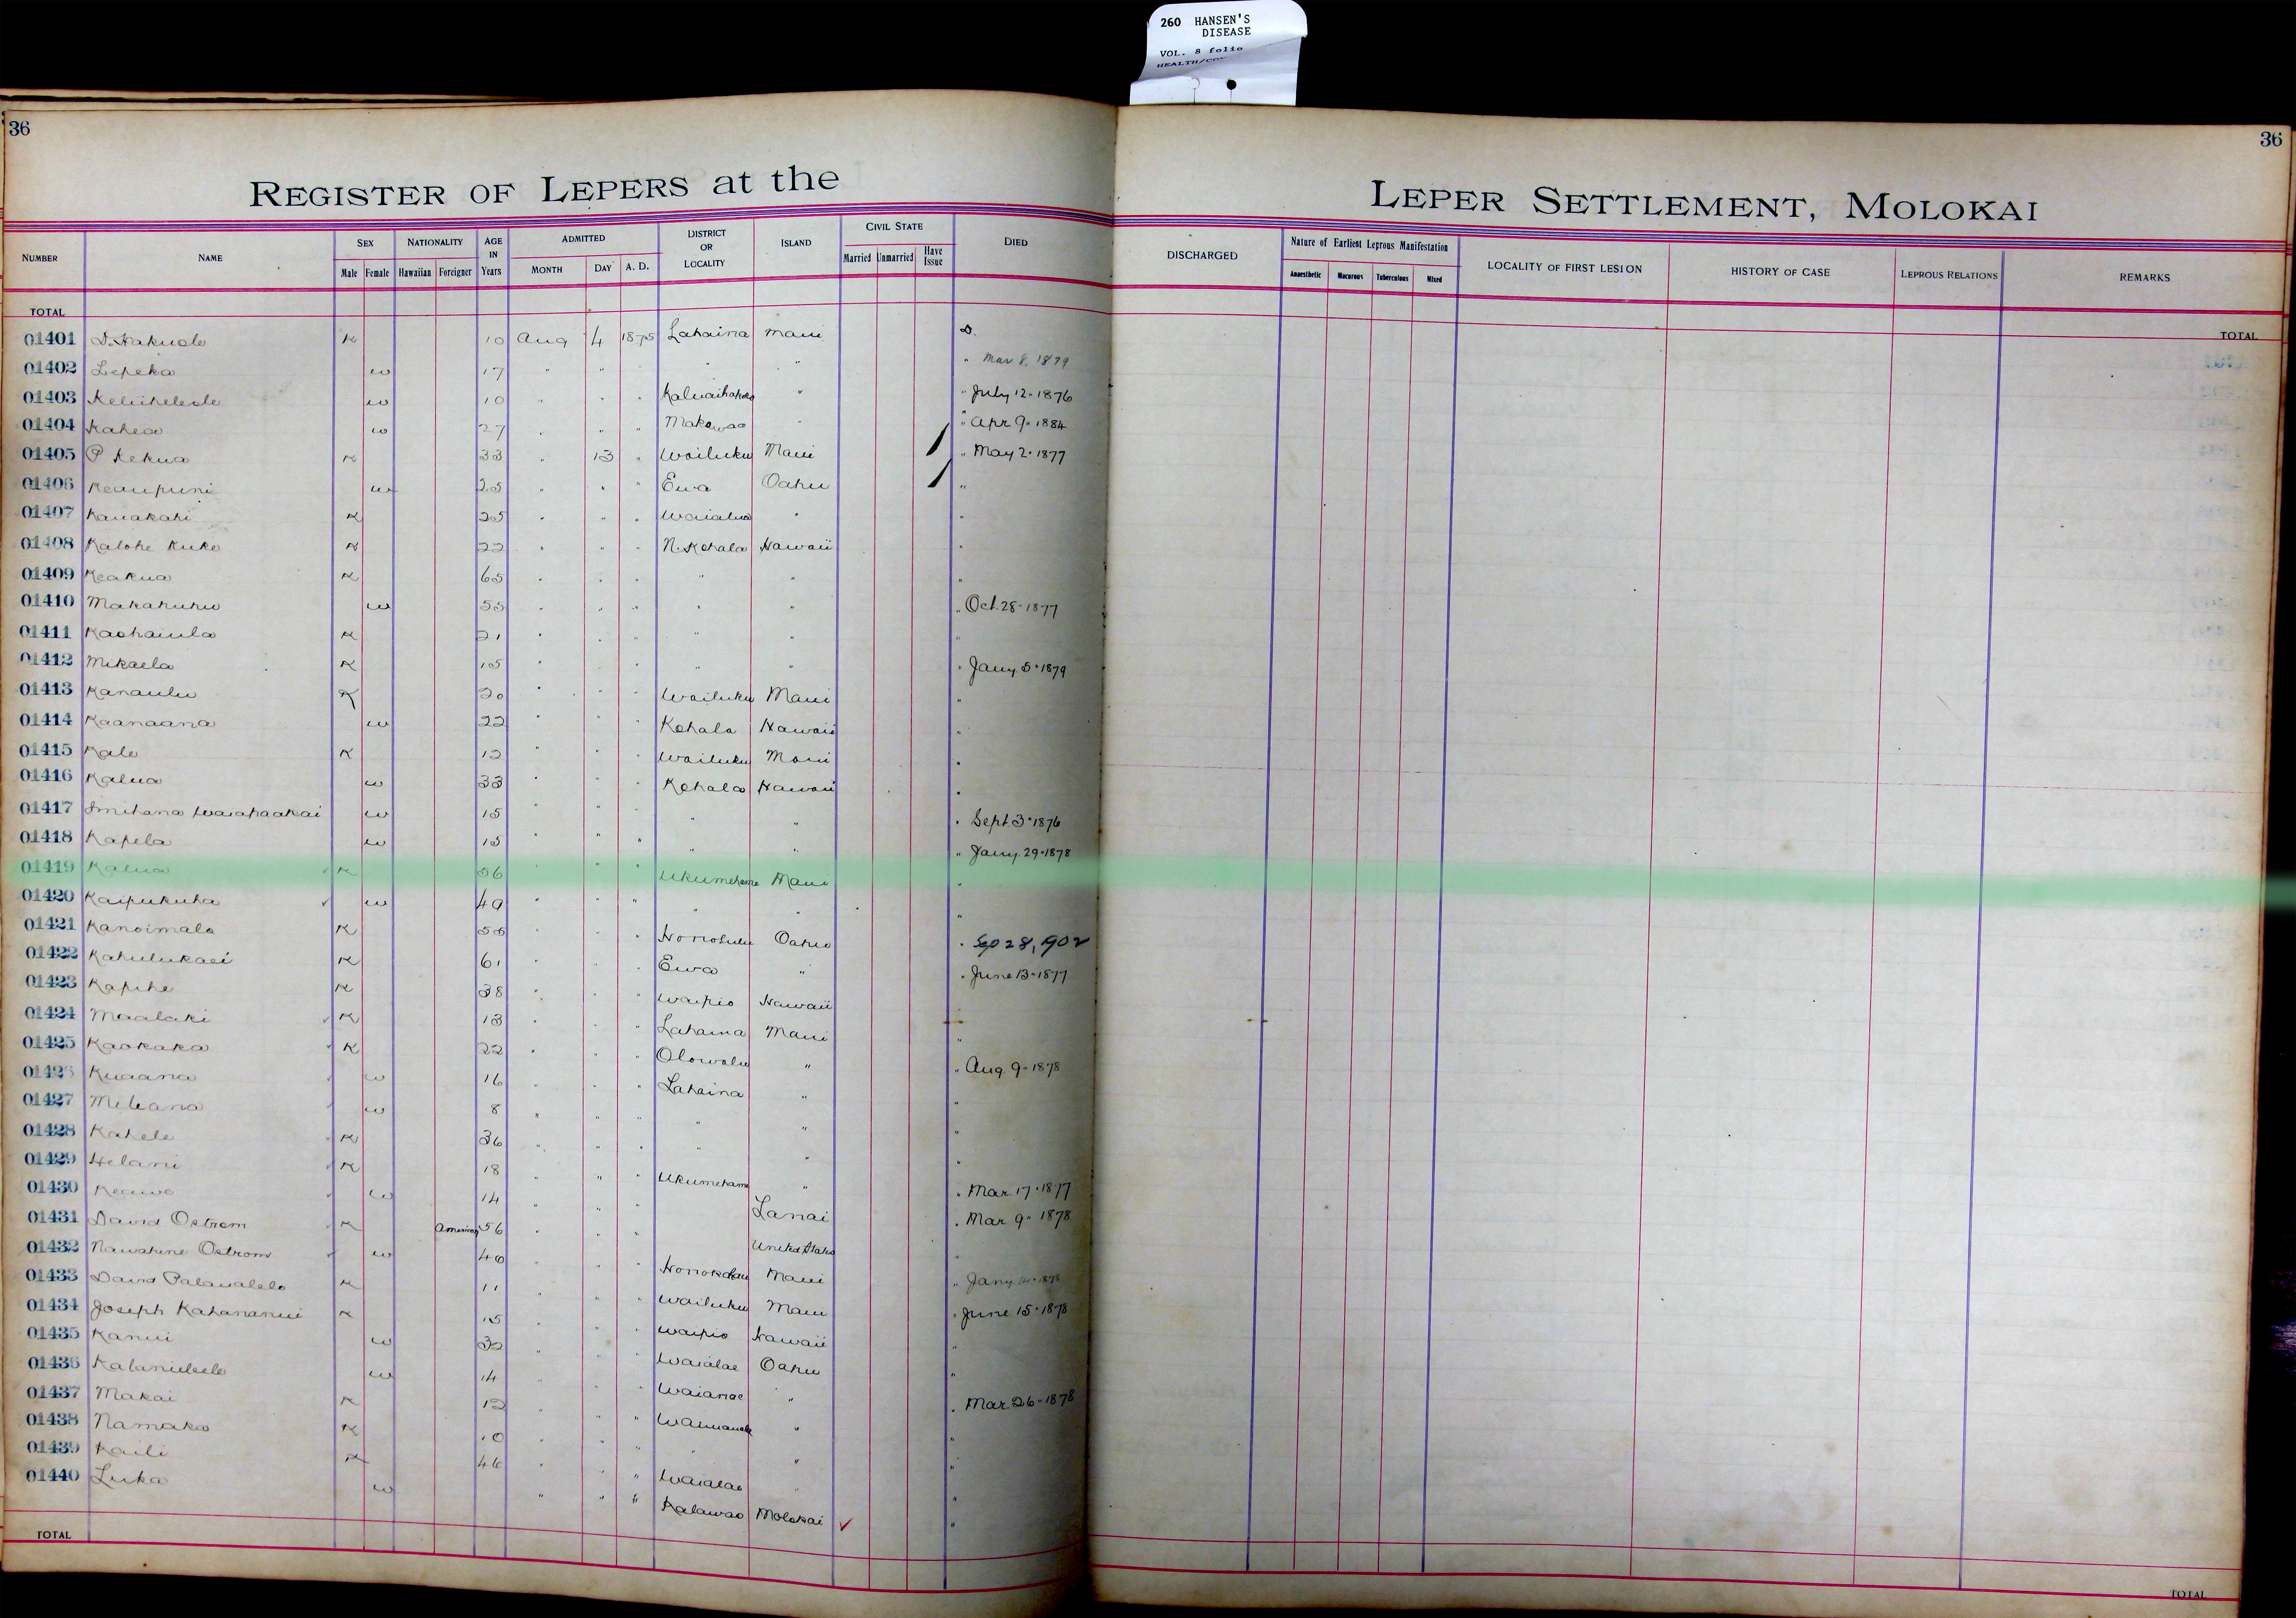 260 HANSEN'S
DISEASE
VOL. 8 folio
36
36
REGISTER OF LEPERS at the
LEPER SETTLEMENT, MOLOKAI
NUMBER NAME SEX NATIONALITY AGE IN Years ADMITTED DISTRICT OR LOCALITY ISLAND CIVIL STATE DIED
Male Female Hawaiian Foreigner MONTH DAY A. D. Married Unmarried Have Issue
DISCHARGED Nature of Earliest Leprous Manifestation LOCALITY OF FIRST LESION HISTORY OF CASE LEPROUS RELATIONS REMARKS
Anaesthetic Macurous Tuberculous Mixed
TOTAL
TOTAL
01401 D. Hakuole K 10 Aug 4 1875 Lahaina Maui D.
01402 Lepeka w 17 " " " " " " Mar 8, 1879
01403 w 10 " " " " " July 12-1876
01404 Kahea w 27 " " " Makawao " " Apr 9-1884
01405 P Kekua K 33 " 13 " Wailuku Maui " May 2-1877
01406 Keaupuni w 25 " " " Ewa Oahu "
01407 Kauakahi K 25 " " " Waialua " "
01408 Kalohe Kuke K 22 " " " N. Kohala Hawaii "
01409 Keakua K 65 " " " " " "
01410 Makahuhu w 55 " " " " " " Oct. 28-1877
01411 Kaohaiula K 21 " " " " " "
01412 Mikaela K 15 " " " " " " Jany 5-1879
01413 Kanaulu K 20 " " " Wailuku Maui "
01414 Kaanaana w 22 " " " Kohala Hawaii "
01415 Kale K 12 " " " Wailuku Maui "
01416 Kalua w 33 " " " Kohala Hawaii "
01417 w 15 " " " " " " Sept. 3-1876
01418 Kapela w 15 " " " " " " Jany. 29-1878
01419 Kalua K 56 " " " Ukumehame Maui "
01420 Kaipukuha w 49 " " " " " "
01421 Kanoimalo K 55 " " " Honolulu Oahu " Sep 28, 1902
01422 K 61 " " " Ewa " " June 13-1877
01423 Kapihe K 38 " " " Waipio Hawaii
01424 Maalaki K 13 " " " Lahaina Maui "
01425 Kaokaka K 22 " " " Olowalu " " Aug. 9-1878
01426 Kuaana w 16 " " " Lahaina " "
01427 Meleana w 8 " " " " " "
01428 Kahele K 36 " " " " " "
01429 Helani K 18 " " " Ukumehame " " Mar. 17-1877
01430 Keawe w 14 " " " Lanai " Mar. 9-1878
01431 David Ostrom K American 56 " " " United States "
01432 Nawahine Ostrom w 40 " " " Honokohau Maui " Jany 1878
01433 David K 11 " " " Wailuku Maui " June 15-1878
01434 Joseph Kahananui K 15 " " " Waipio Hawaii "
01435 Kanui w 32 " " " Waialae Oahu "
01436 w 14 " " " Waianae " " Mar. 26-1878
01437 Makai K 12 " " " " "
01438 Namaka K 10 " " " " " "
01439 Kaili K 46 " " " Waialae " "
01440 Luka w " " " Kalawao Molokai ✓ "
TOTAL
TOTAL